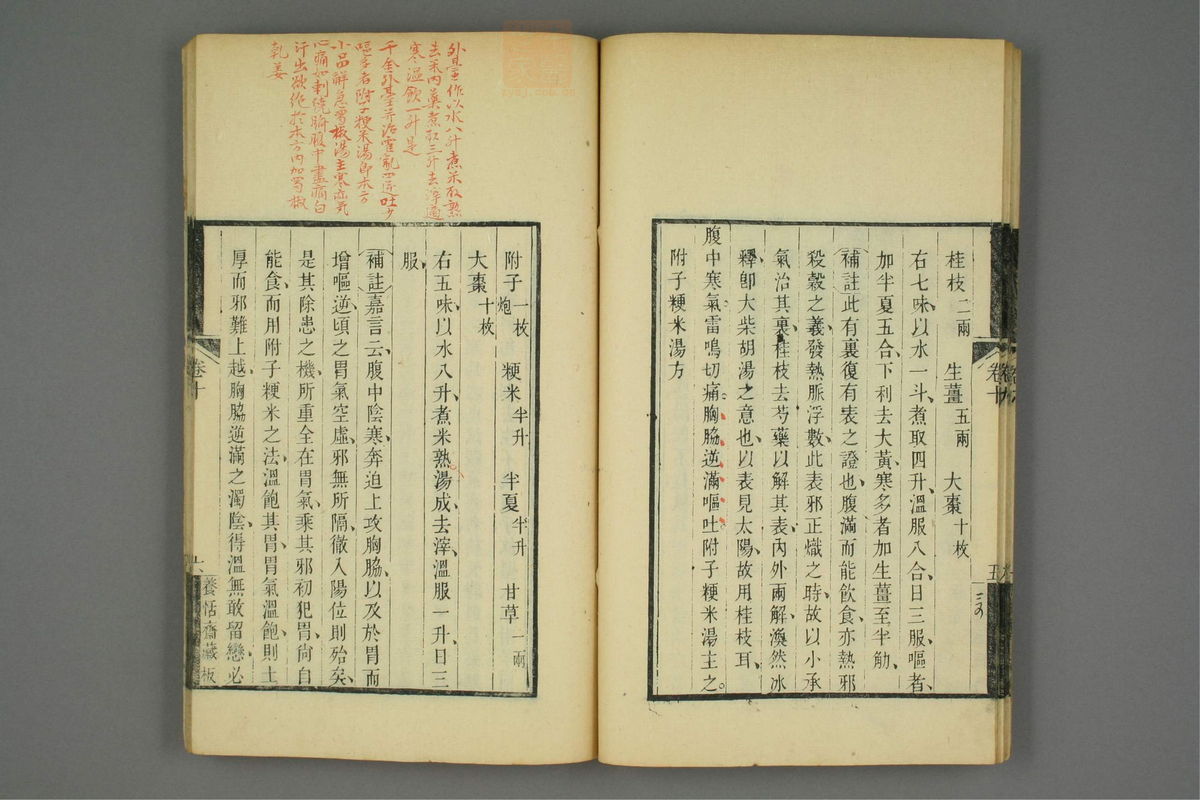 桂枝二兩 生薑五兩 大棗十枚
右七味以水一斗煮取四升溫服八合日三服嘔者
加半夏五合下利去大黃寒多者加生薑至半觔
補註此有裏復有表之證也腹滿而能飲食亦熱邪
殺穀之義發熱脈浮數此表邪正熾之時故以小承
氣治其裏桂枝去芍藥以解其表內外兩解渙然冰
釋卽大柴胡湯之意也以表見太陽故用桂枝耳
腹中寒氣雷鳴切痛胸脇逆滿嘔吐附子粳米湯主之
附子粳米湯方
卷十
五
外臺作以水八升煮米取熟
去米內藥煮取三升去滓適
寒溫飲一升是
千金外臺并治霍亂四逆吐少
嘔多者附子粳米湯卽本方
小品解急蜀椒湯主寒疝氣
心痛如刺繞臍腹中盡痛白
汗出欲絶於本方內加蜀椒
乾姜
附子一枚炮 粳米半升 半夏半升 甘草一兩
大棗十枚
右五味以水八升煮米熟湯成去滓溫服一升日三
服
補註嘉言云腹中陰寒奔迫上攻胸脇以及於胃而
增嘔逆頃之胃氣空虛邪無所隔徹入陽位則殆矣
是其除患之機所重全在胃氣乘其邪初犯胃尙自
能食而用附子粳米之法溫飽其胃胃氣溫飽則土
厚而邪難上越胸脇逆滿之濁陰得溫無敢留戀必
卷十
六
養恬齋藏板